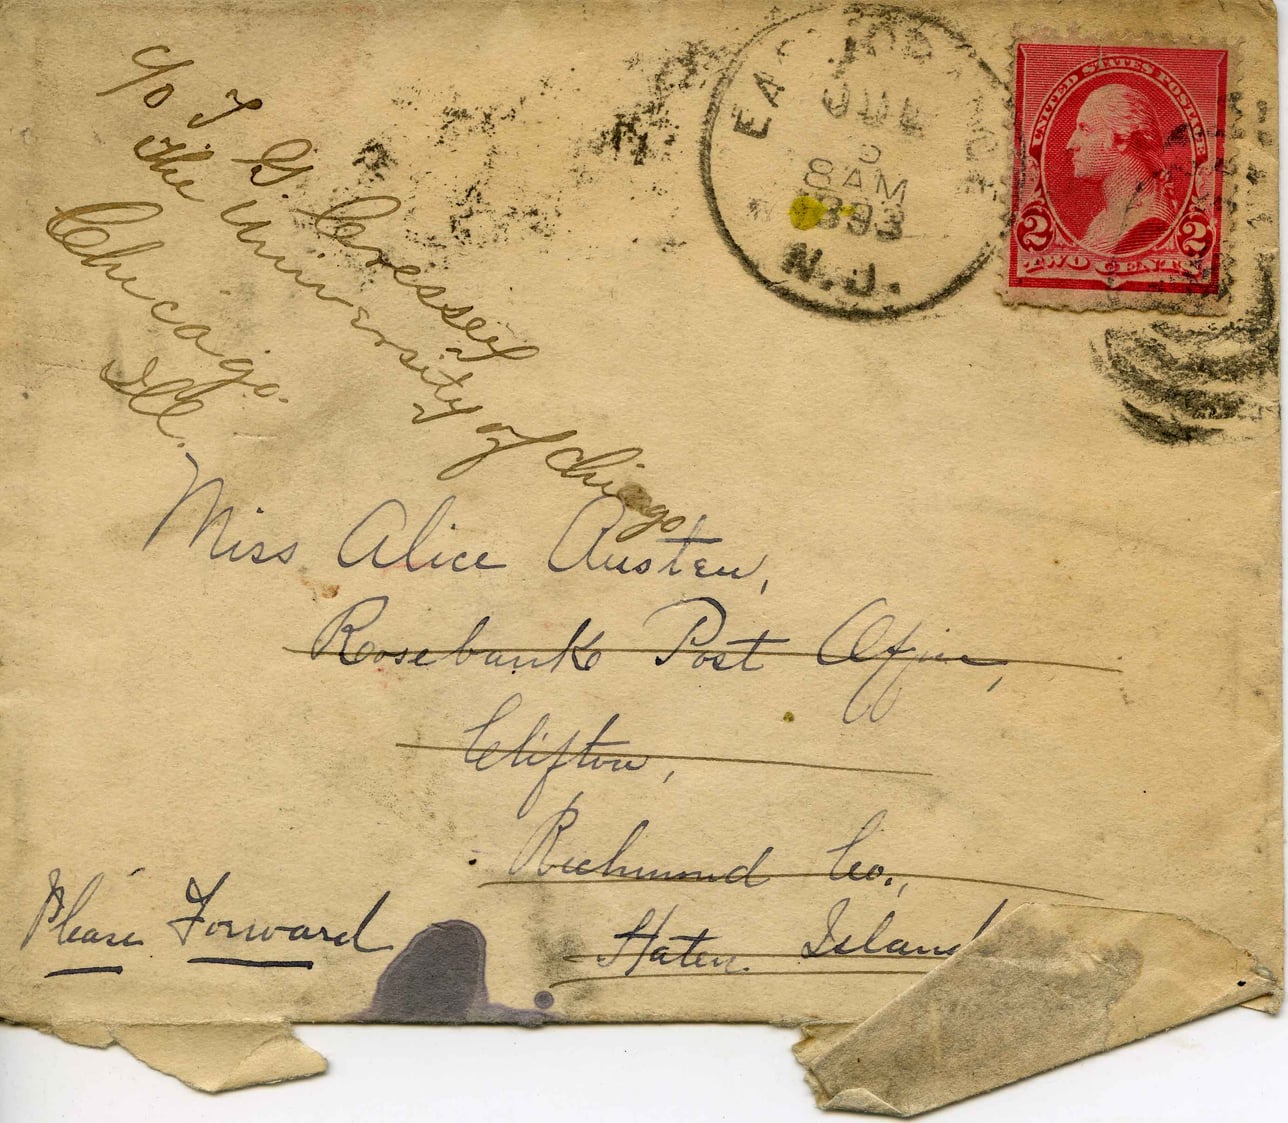 c/o T. G. Cressey
The University of Chicago
Chicago.
Ill.
N.J.
8 AM
1893
UNITED STATES POSTAGE
2 2
TWO CENTS
Miss Alice Austen,
Rosebank Post Office,
Clifton,
Richmond Co.,
Staten Island
Please Forward